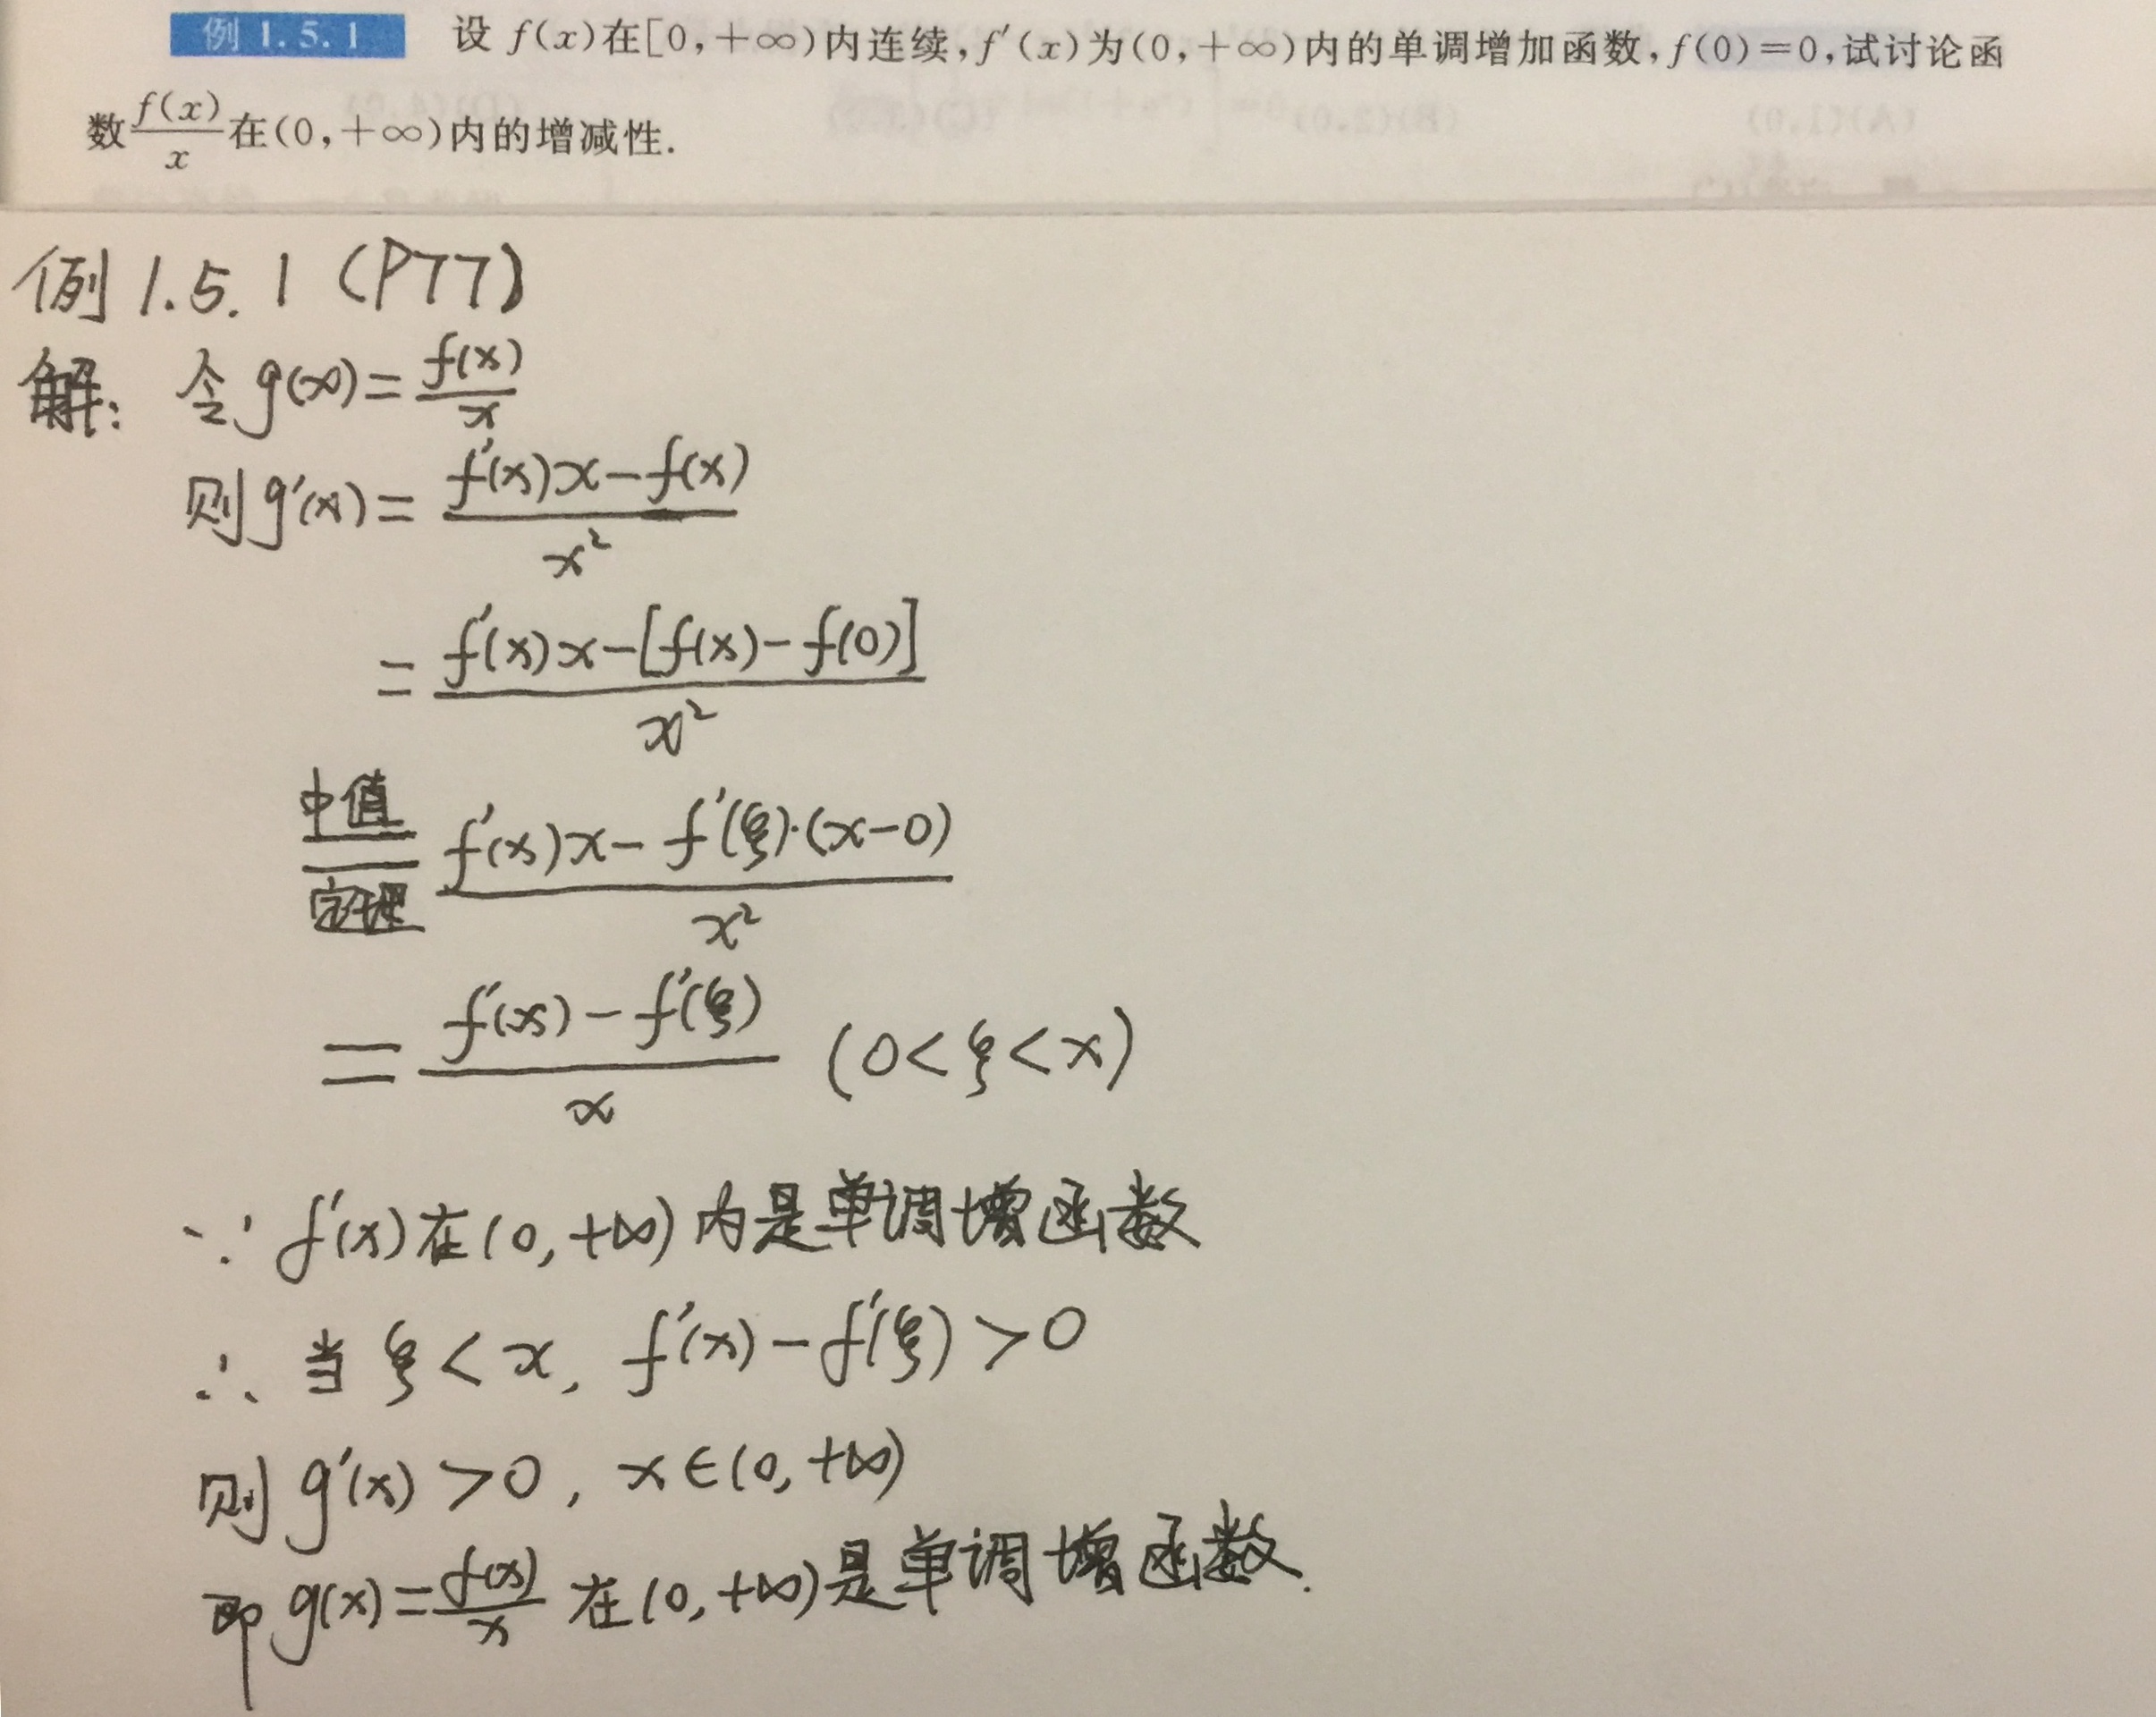 例 1.5.1 设 f(x)在[0,+∞)内连续,f′(x)为(0,+∞)内的单调增加函数,f(0)=0,试讨论函
数 f(x)/x 在(0,+∞)内的增减性.
例 1.5.1 (P77)
解: 令 g(x)= f(x)/x
则 g′(x)= (f′(x)x-f(x))/x²
= (f′(x)x-[f(x)-f(0)])/x²
中值定理 = (f′(x)x-f′(ξ)·(x-0))/x²
= (f′(x)-f′(ξ))/x (0<ξ<x)
∵ f′(x)在(0,+∞)内是单调增函数
∴ 当 ξ<x, f′(x)-f′(ξ)>0
则 g′(x)>0, x∈(0,+∞)
即 g(x)= f(x)/x 在(0,+∞)是单调增函数.